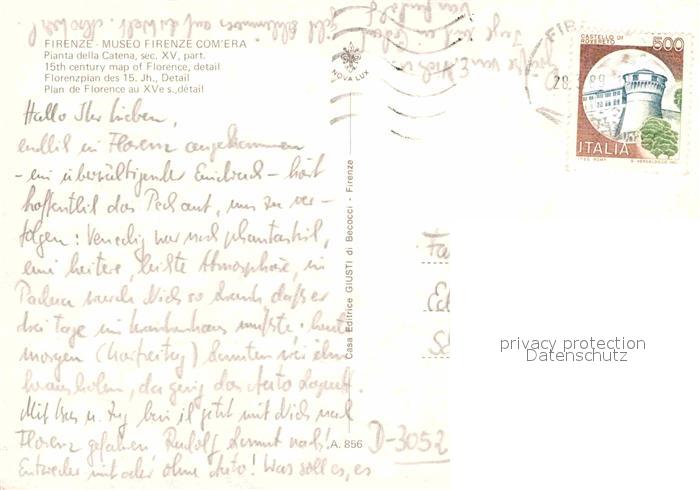 FIRENZE - MUSEO FIRENZE COM'ERA
Pianta della Catena, sec. XV, part.
15th century map of Florence, detail
Florenzplan des 15. Jh., Detail
Plan de Florence au XVe s., détail
NOVA LUX
Hallo Ihr Lieben,
endlich in Florenz angekommen
- ein überwältigender Eindruck - hört
hoffentlich das Pech auf, uns zu ver-
folgen: Venedig war noch phantastisch,
eine heitere, leichte Atmosphäre, in
Padua wurde Nick so krank, daß er
drei Tage ins Krankenhaus mußte. heute
morgen (Karfreitag) konnten wir ihn
herausholen, da ging das Auto kaputt.
Mit Bus u. Zug bin ich jetzt mit Nick nach
Florenz gefahren, Rudolf kommt nach!
Entweder mit oder ohne Auto! Was soll es, es
Casa Editrice GIUSTI di Becocci - Firenze
A. 856
FI
28
89
CASTELLO DI
ROVERETO
500
ITALIA
D-3052
privacy protection
Datenschutz